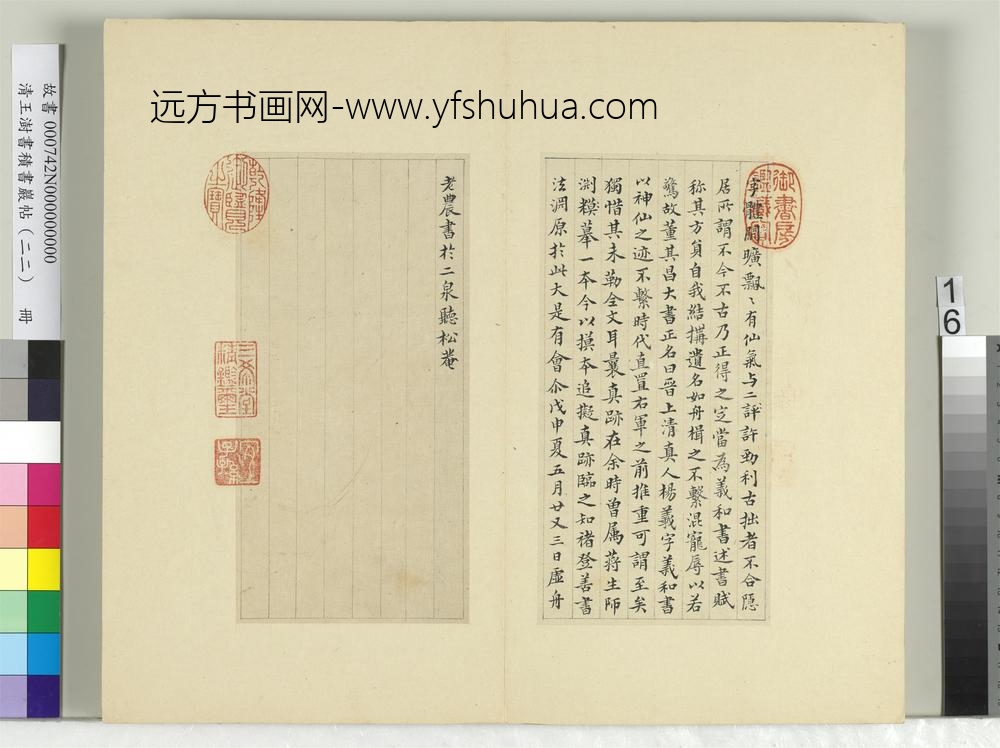 远方书画网-www.yfshuhua.com
故書 000742N000000000
清王澍書積書巖帖(二二) 冊
16
御書房鑑藏寶
字體閒曠飄飄有仙氣与二許勁利古拙者不合隐
居所謂不今不古乃正得之定當為羲和書述書賦
称其方負自我結搆遺名如舟楫之不繫混寵辱以若
驚故董其昌大書正名曰晋上清真人楊羲字羲和書
以神仙之迹不繫時代直置右軍之前推重可謂至矣
獨惜其未勒全文耳曩真跡在余時曾属蒋生師
渕糢摹一本今以摸本追擬真跡臨之知褚登善書
法淵原於此大是有會尒戊申夏五月廿又三日虛舟
老農書於二泉聽松菴
乾隆御覽之寶
三希堂精鑑璽
宜子孫